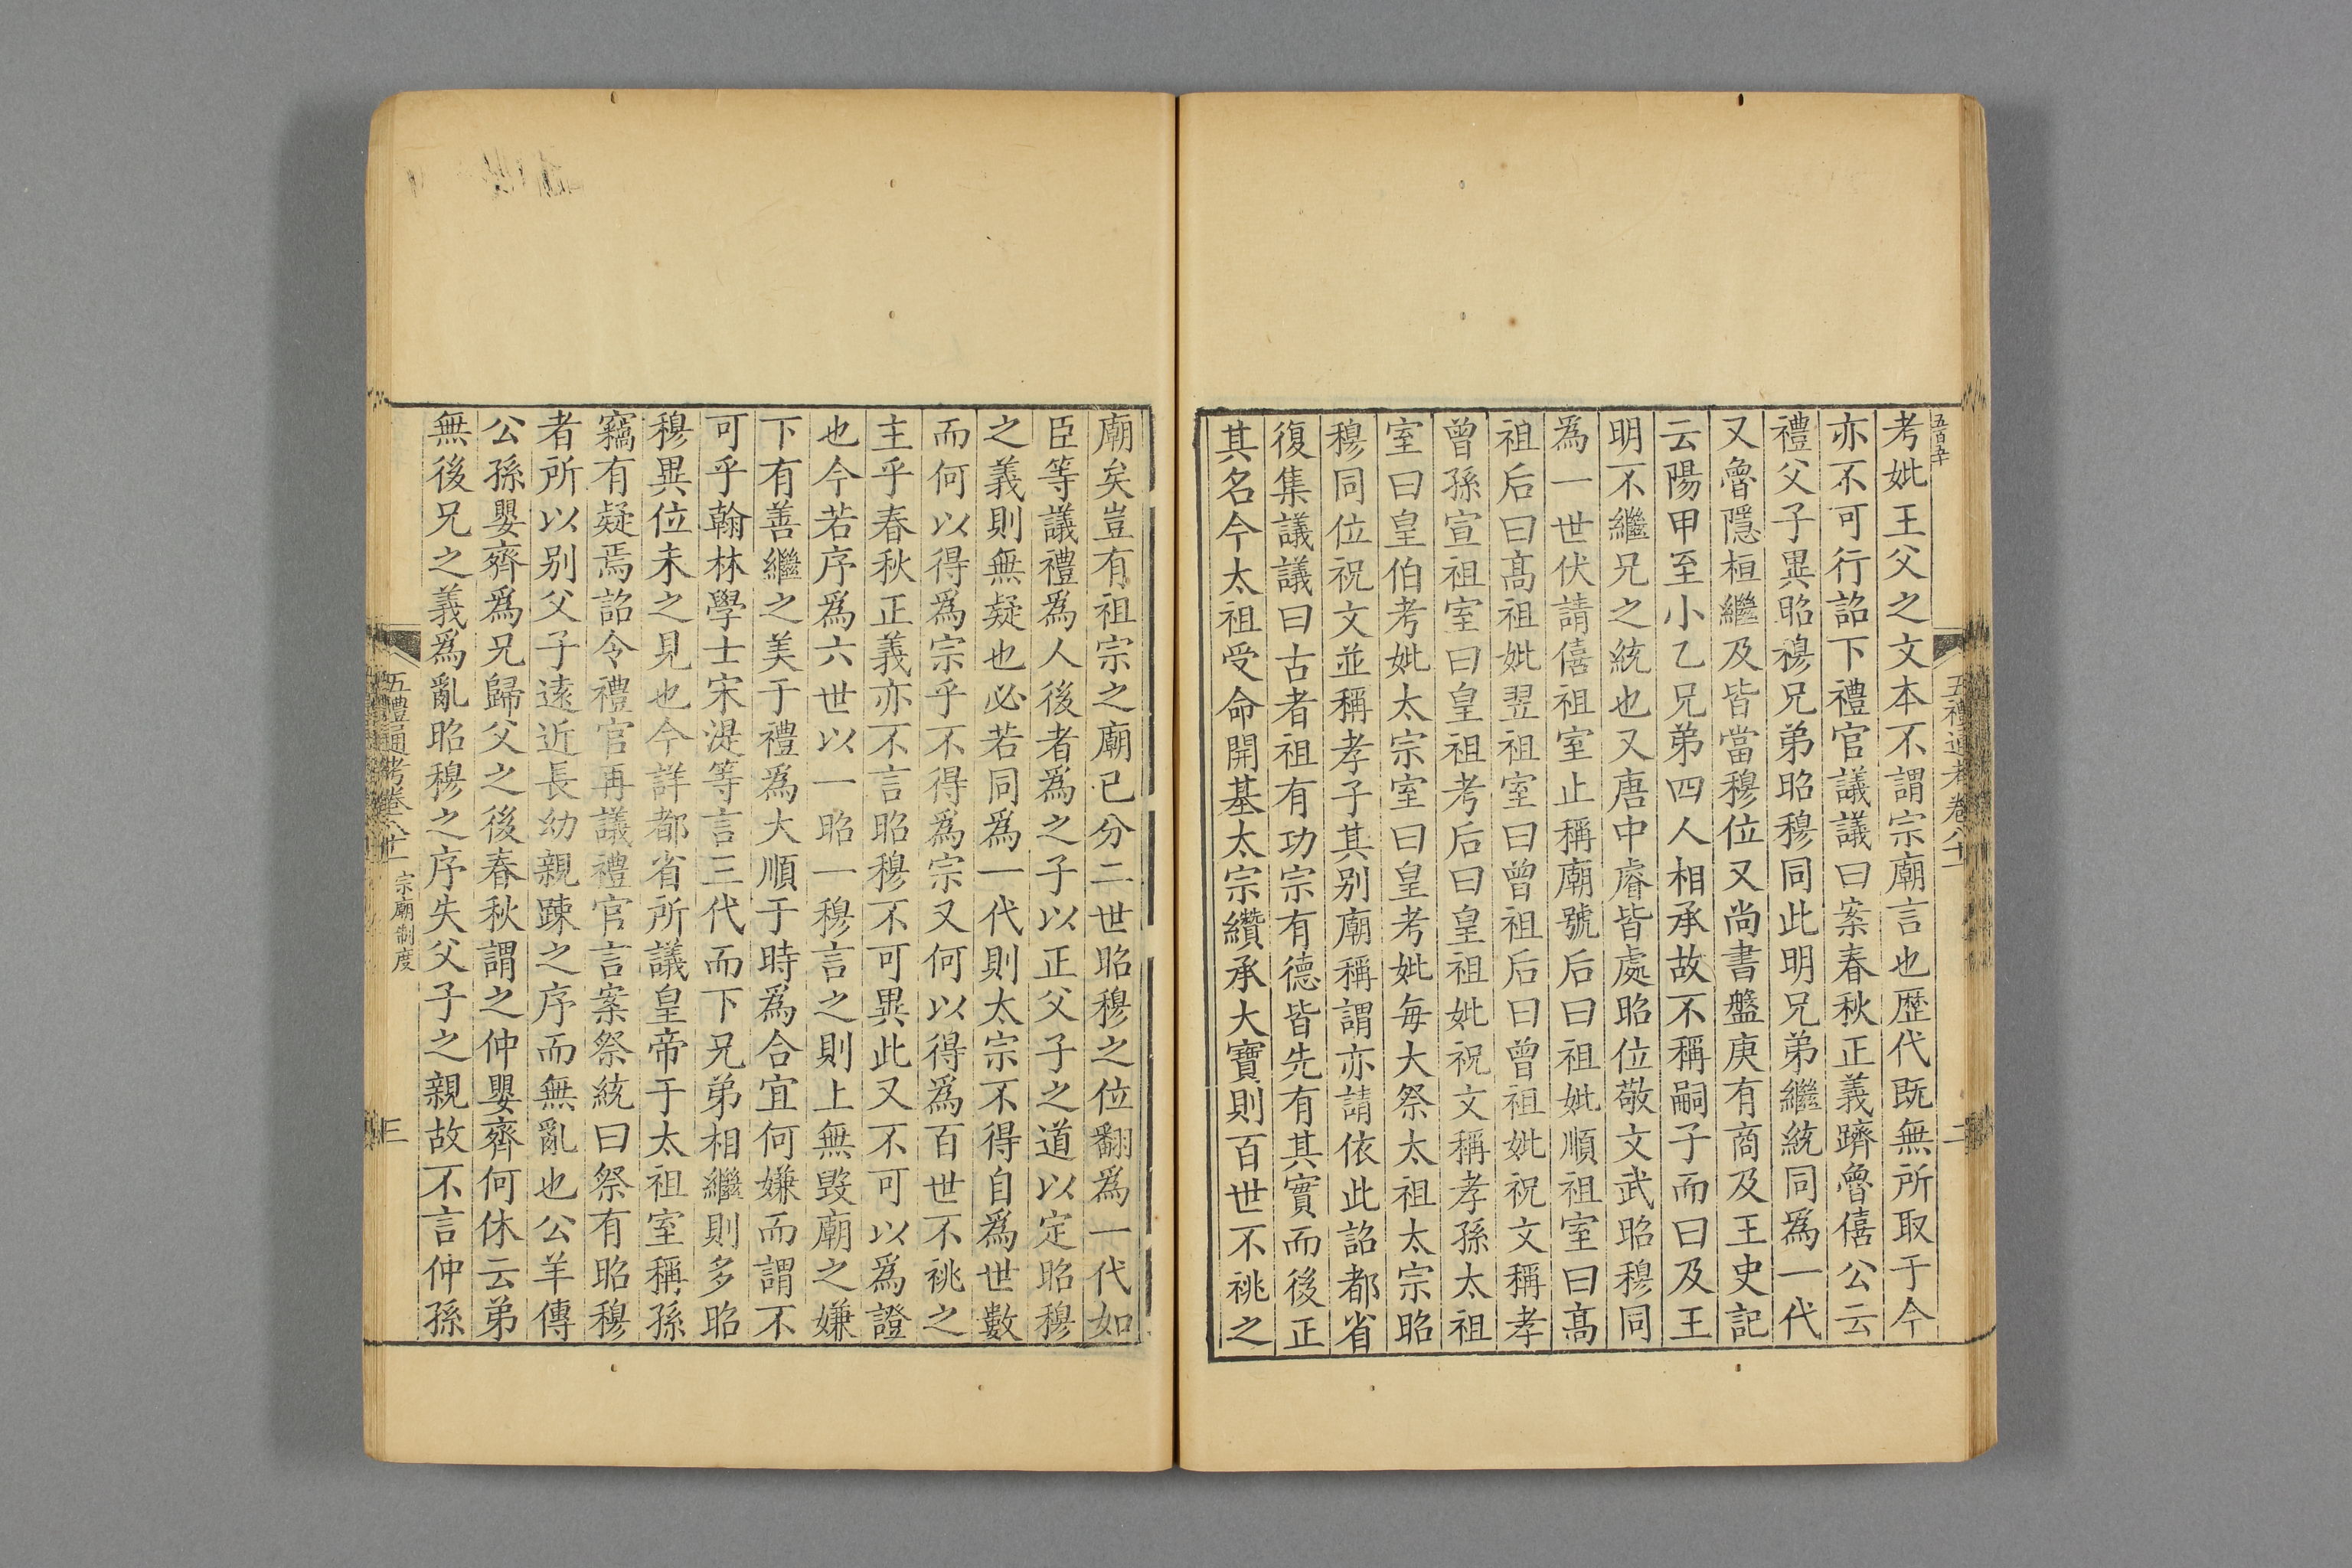 五百五十
五禮通考卷八十一
二
考妣王父之文本不謂宗廟言也歷代既無所取于今
亦不可行詔下禮官議議曰案春秋正義躋魯僖公云
禮父子異昭穆兄弟昭穆同此明兄弟繼統同爲一代
又魯隱桓繼及皆當穆位又尚書盤庚有商及王史記
云陽甲至小乙兄弟四人相承故不稱嗣子而曰及王
明不繼兄之統也又唐中睿皆處昭位敬文武昭穆同
爲一世伏請僖祖室止稱廟號后曰祖妣順祖室曰高
祖后曰高祖妣翌祖室曰曾祖后曰曾祖妣祝文稱孝
曾孫宣祖室曰皇祖考后曰皇祖妣祝文稱孝孫太祖
室曰皇伯考妣太宗室曰皇考妣每大祭太祖太宗昭
穆同位祝文並稱孝子其别廟稱謂亦請依此詔都省
復集議議曰古者祖有功宗有德皆先有其實而後正
其名今太祖受命開基太宗纘承大寶則百世不祧之
廟矣豈有祖宗之廟已分二世昭穆之位翻爲一代如
臣等議禮爲人後者爲之子以正父子之道以定昭穆
之義則無疑也必若同爲一代則太宗不得自爲世數
而何以得爲宗乎不得爲宗又何以得爲百世不祧之
主乎春秋正義亦不言昭穆不可異此又不可以爲證
也今若序爲六世以一昭一穆言之則上無毀廟之嫌
下有善繼之美于禮爲大順于時爲合宜何嫌而謂不
可乎翰林學士宋湜等言三代而下兄弟相繼則多昭
穆異位未之見也今詳都省所議皇帝于太祖室稱孫
竊有疑焉詔令禮官再議禮官言案祭統曰祭有昭穆
者所以别父子遠近長幼親踈之序而無亂也公羊傳
公孫嬰齊爲兄歸父之後春秋謂之仲嬰齊何休云弟
無後兄之義爲亂昭穆之序失父子之親故不言仲孫
五禮通考卷八十一
宗廟制度
三